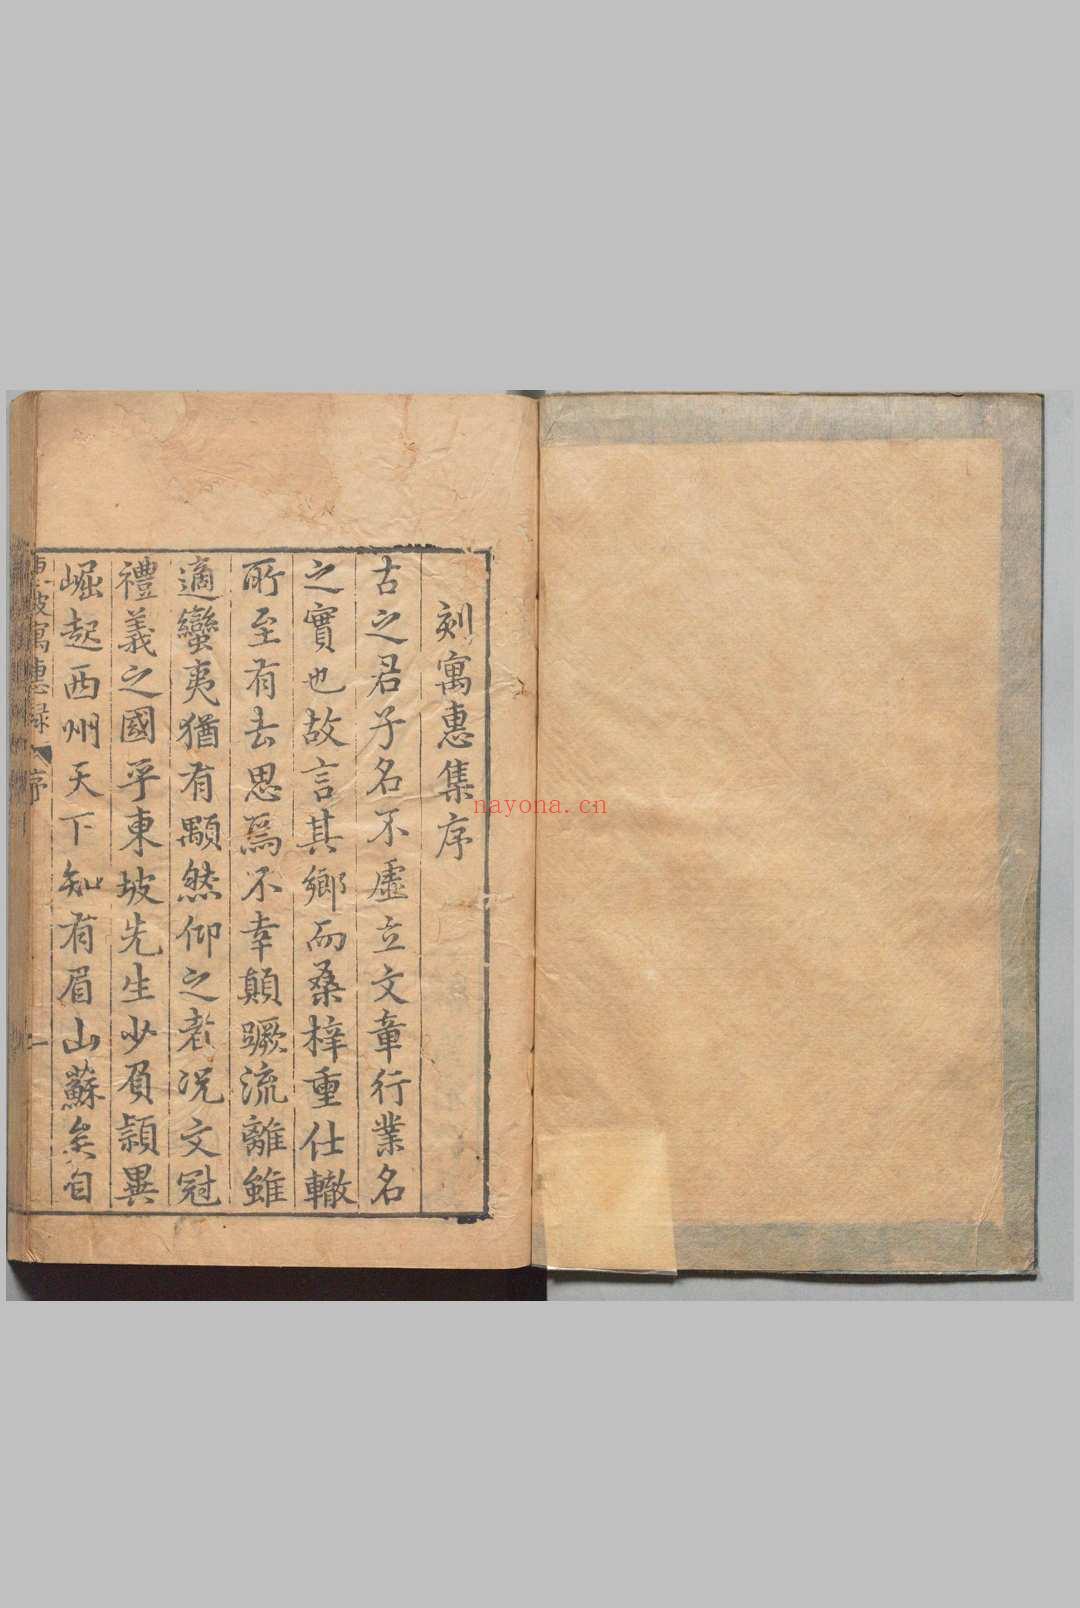 刻寓惠集序
古之君子名不虛立文章行業名
之實也故言其鄉而桑梓重仕轍
所至有去思焉不幸顛蹶流離雖
適蠻夷猶有顒然仰之者况文冠
禮義之國乎東坡先生少負穎異
崛起西州天下知有眉山蘇矣自
東坡寓惠録 序 一
nayona.cn